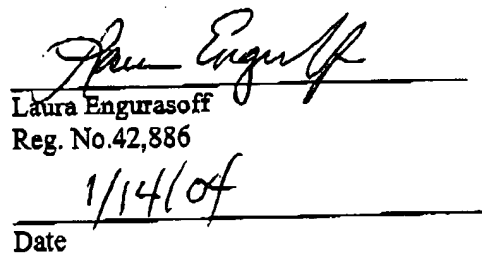 Laura Engurasoff
Laura Engurasoff
Reg. No.42,886
1/14/04
Date